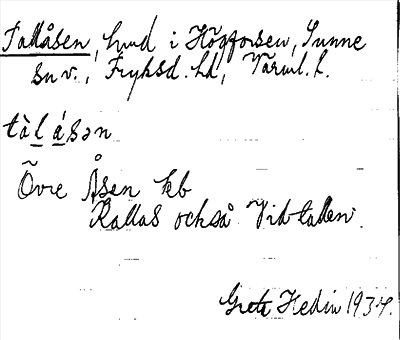 Tallåsen, hmd i Högforsen, Sunne
sn v., Fryksd. hd, Värml. l.
tàlásən
Övre Åsen kb
Kallas också Vid tallen.
Greta Hedin 1934.